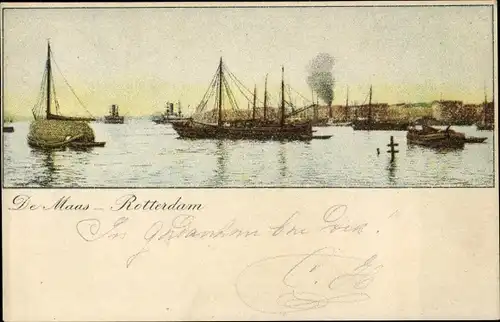 De Maas - Rotterdam
In Gedanken bei Dir!